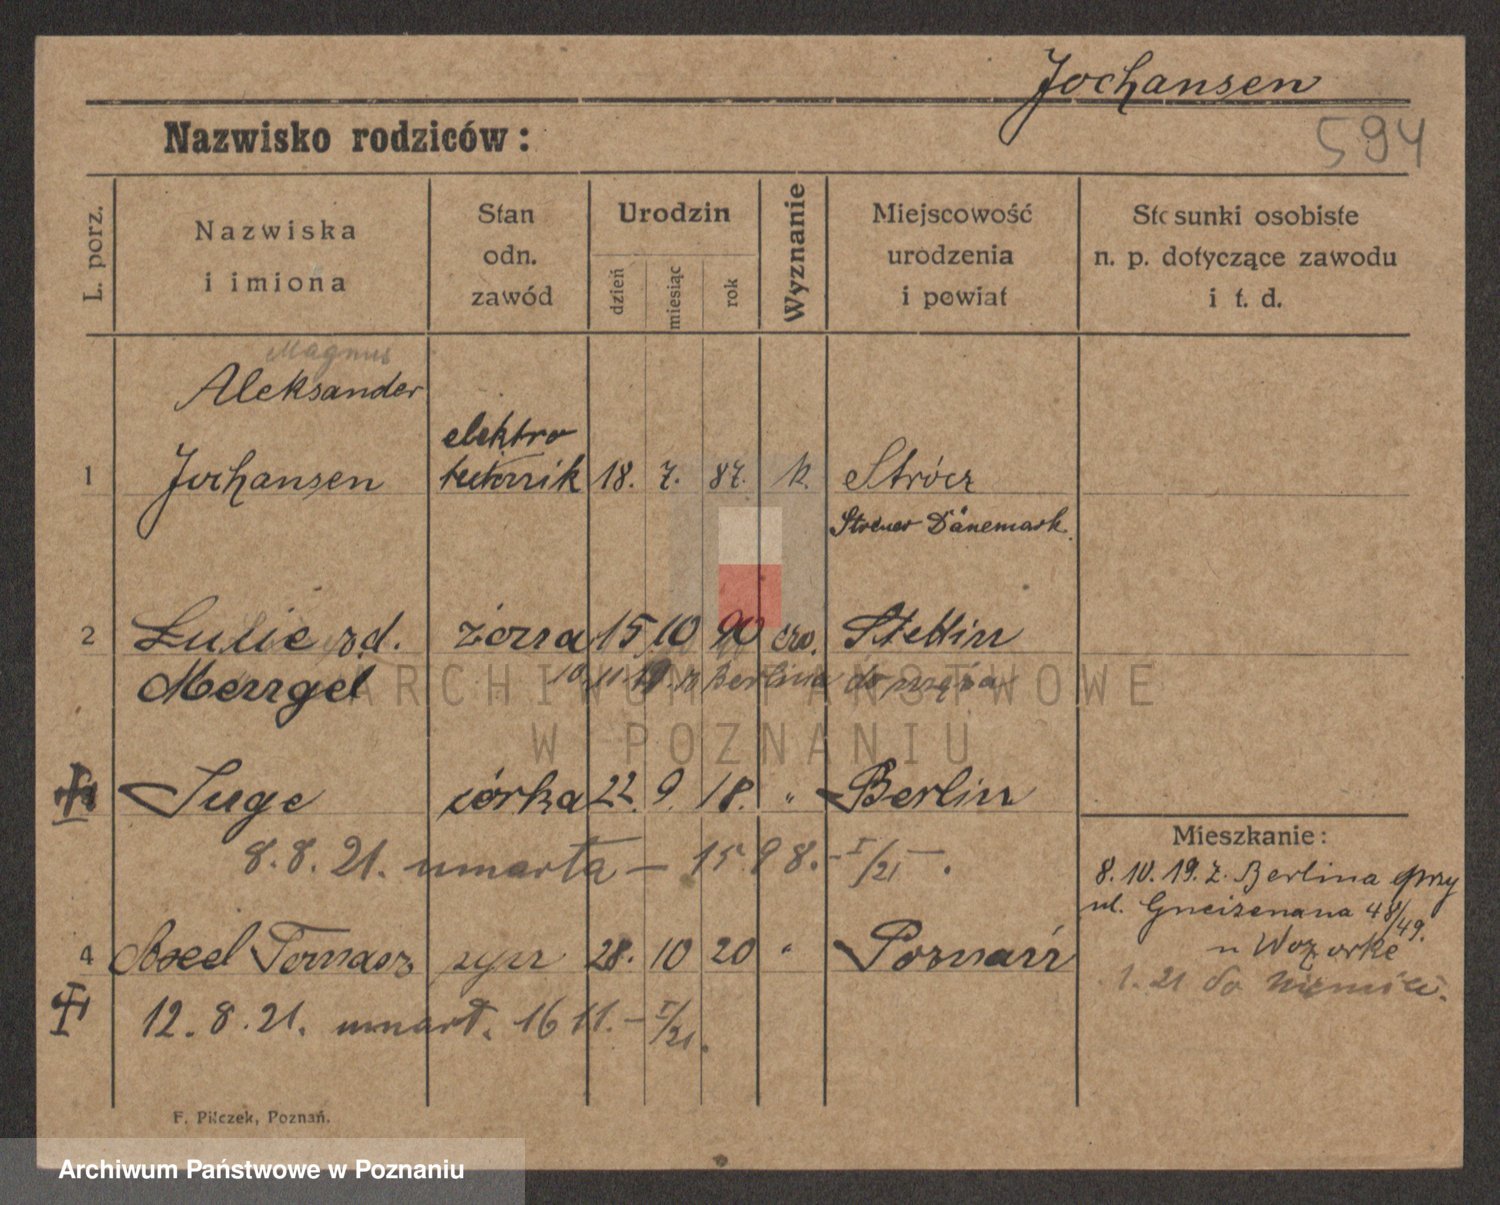 Jochansen
594
Nazwisko rodziców:
L. porz.
Nazwiska
i imiona
Stan
odn.
zawód
Urodzin
dzień
miesiąc
rok
Wyznanie
Miejscowość
urodzenia
i powiat
Stosunki osobiste
n. p. dotyczące zawodu
i t. d.
Magnus
Aleksander
elektro
1 Jochansen technik 18. 7. 87. k. Strócz
Struer Dänemark.
2 Luzie zd. żona 15 10 90 ew. Stettin
Mengel 10.11.19. z Berlina do męża
Inge córka 22. 9. 18. " Berlin
8.8.21. umarła – 1598. – I/21 – .
Mieszkanie:
8.10.19. z. Berlina przy
ul. Gneisenana 48/49.
u Wozorke
1.21 do Niemiec.
4 Axel Tomasz syn 28. 10 20 " Poznań
12.8.21. umarł. 1611. – I/21.
F. Pilczek, Poznań.
ARCHIWUM PAŃSTWOWE
W POZNANIU
Archiwum Państwowe w Poznaniu